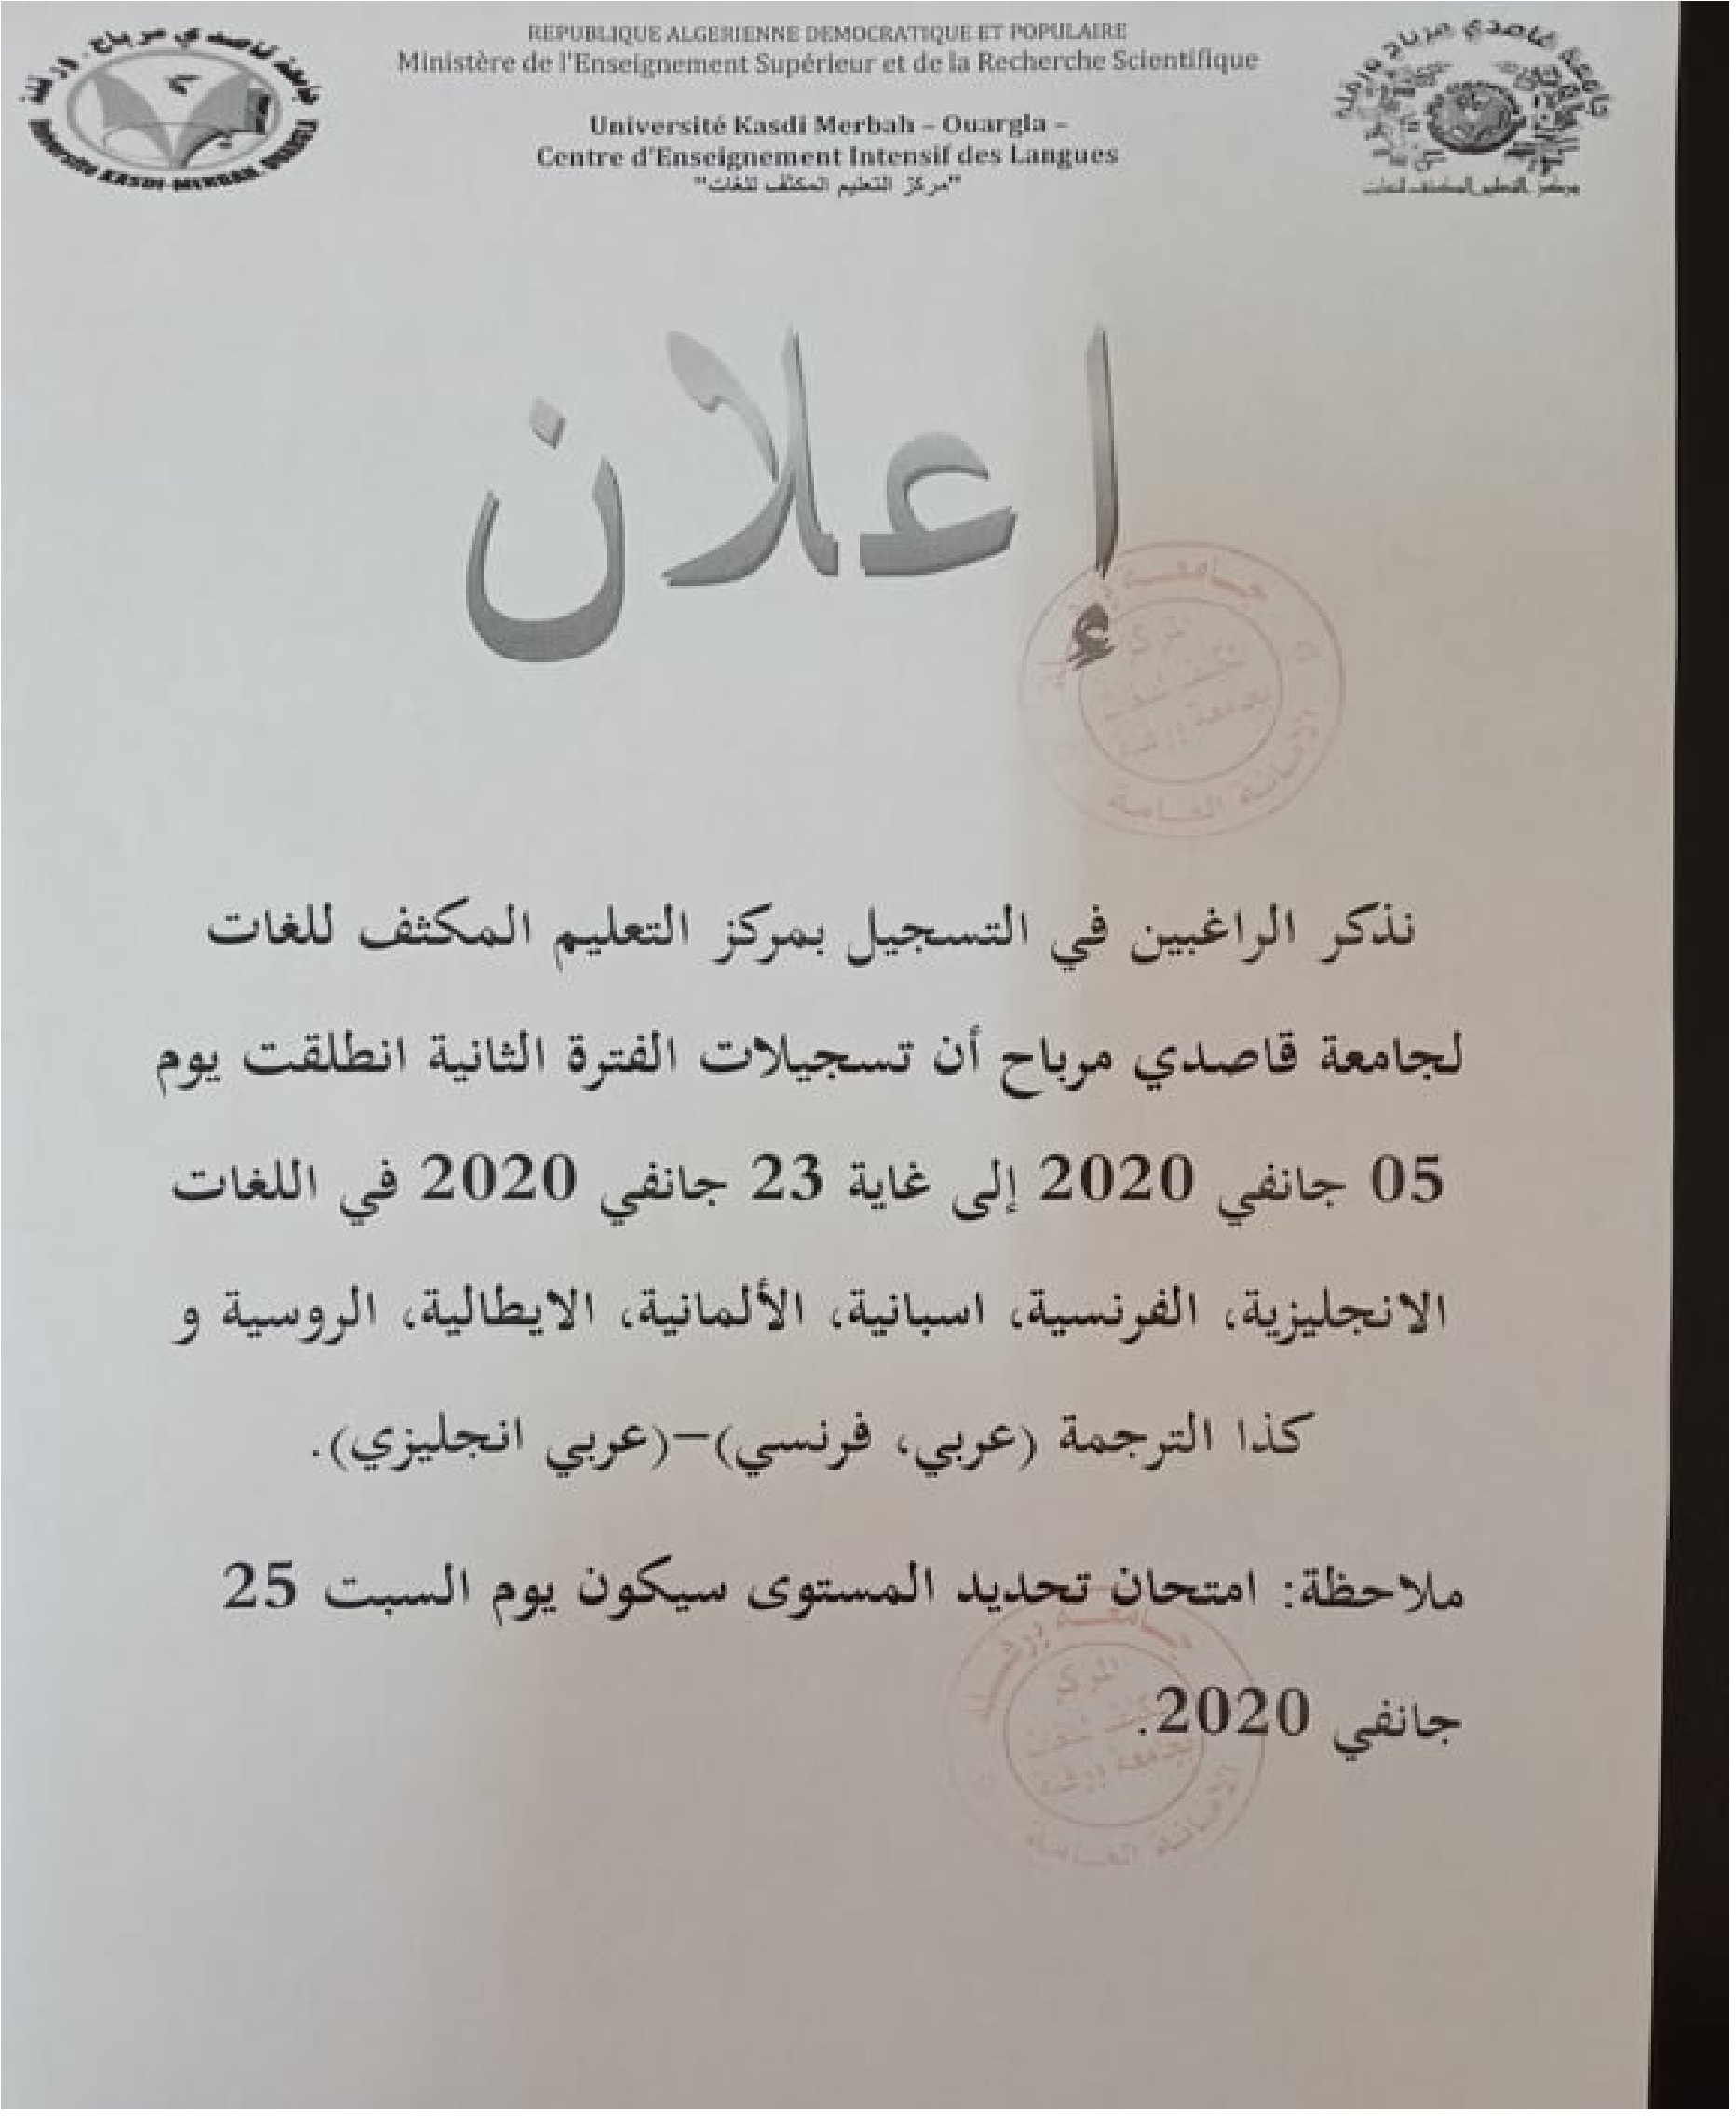 REPUBLIQUE ALGERIENNE DEMOCRATIQUE ET POPULAIRE
Ministère de l'Enseignement Supérieur et de la Recherche Scientifique
Université Kasdi Merbah – Ouargla –
Centre d'Enseignement Intensif des Langues
"مركز التعليم المكثف للغات"
جامعة قاصدي مرباح ورقلة
Université KASDI-MERBAH
جامعة قاصدي مرباح ورقلة
مركز التعليم المكثف للغات
إعلان
نذكر الراغبين في التسجيل بمركز التعليم المكثف للغات
لجامعة قاصدي مرباح أن تسجيلات الفترة الثانية انطلقت يوم
05 جانفي 2020 إلى غاية 23 جانفي 2020 في اللغات
الانجليزية، الفرنسية، اسبانية، الألمانية، الايطالية، الروسية و
كذا الترجمة (عربي، فرنسي)–(عربي انجليزي).
ملاحظة: امتحان تحديد المستوى سيكون يوم السبت 25
جانفي 2020.
جامعة ورقلة
المركز
بجامعة ورقلة
الامانة العامة